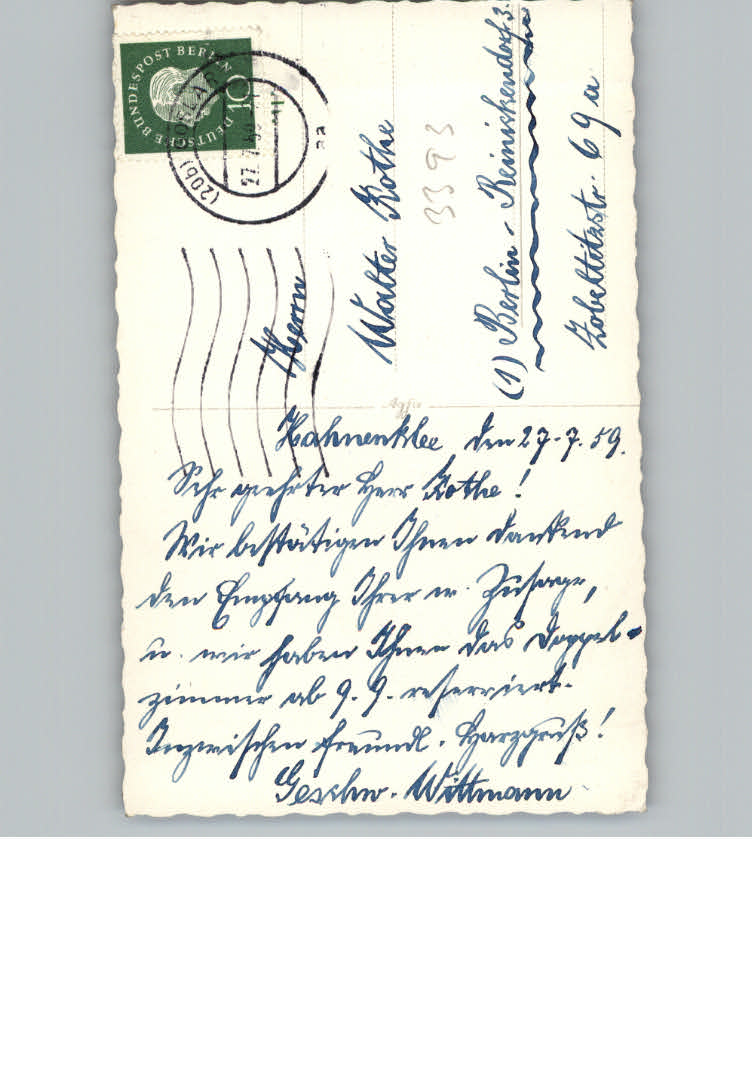 DEUTSCHE BUNDESPOST BERLIN
10
(20b) GOSLAR
27.7.59
aa
Herrn
Walter Kothe
3393
(1) Berlin-Reinickendorf 3.
Zobeltitzstr. 69a
Agfa
Hahnenklee den 27.7.59.
Sehr geehrter Herr Kothe!
Wir bestätigen Ihnen dankend
den Empfang Ihrer w. Zusage,
u. wir haben Ihnen das Doppel-
zimmer ab 9.9. reserviert.
Inzwischen freundl. Harzgruß!
Geschw. Wittmann